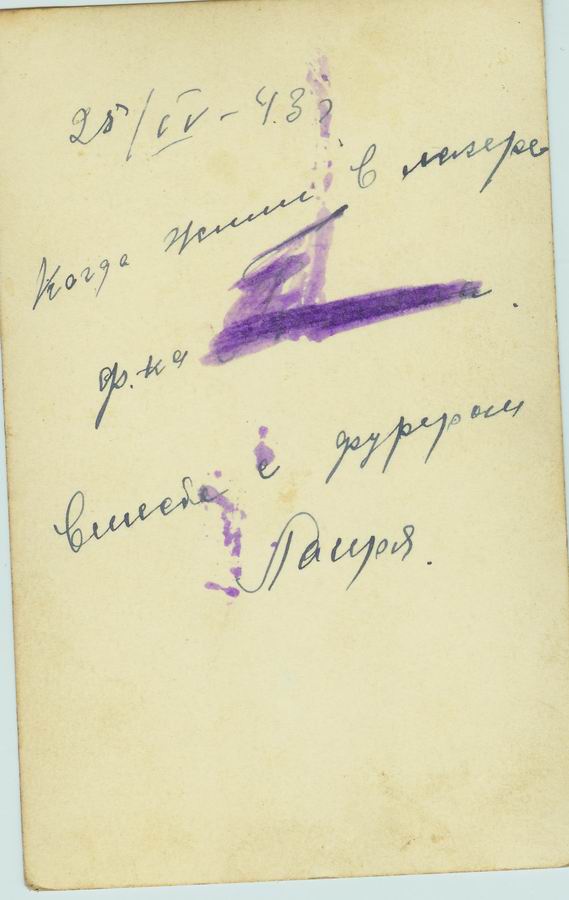 25/IV-43г
Когда жили в лагере
ф-ка
вместе с фурером